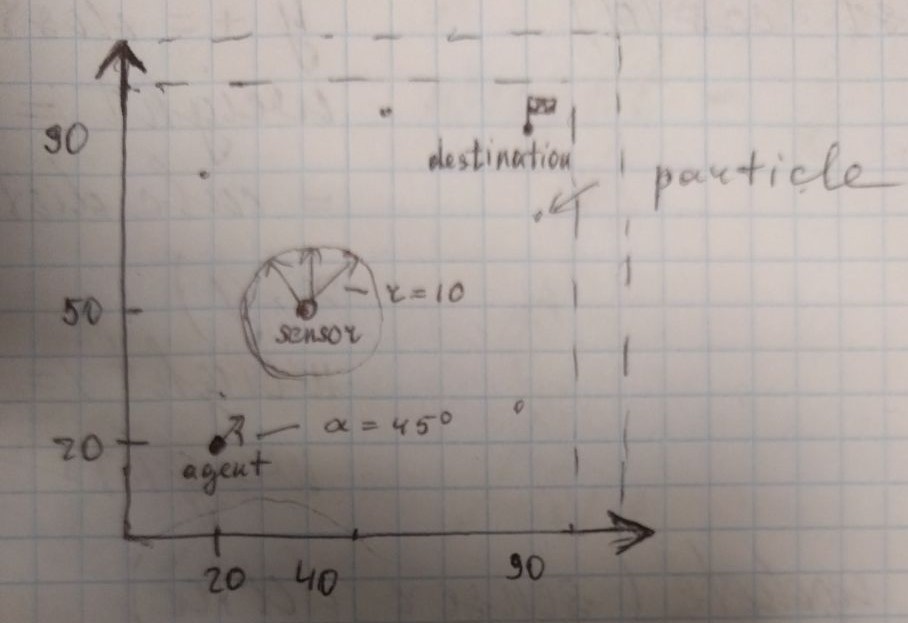 90
destination
particle
50
r = 10
sensor
20
α = 45°
agent
20 40 90